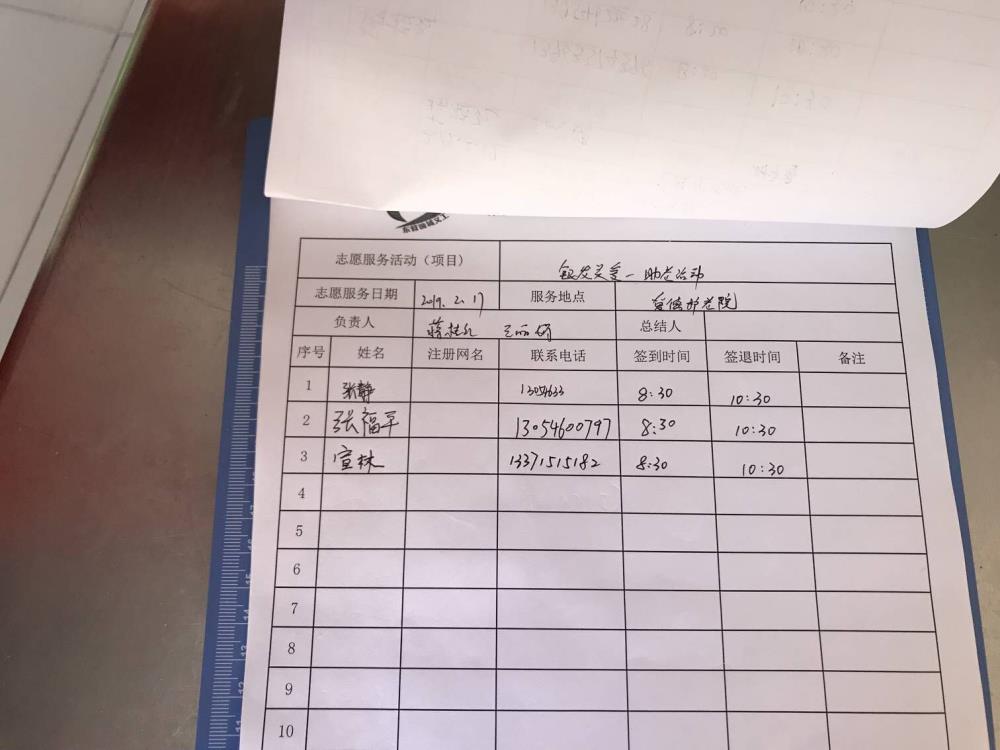 东营微城义工
志愿服务活动（项目） 银发关爱—助老活动
志愿服务日期 2019.2.17 服务地点 养老院
负责人 总结人
序号 姓名 注册网名 联系电话 签到时间 签退时间 备注
1 张静 13054633 8:30 10:30
2 张福平 13054600797 8:30 10:30
3 宣林 13371515182 8:30 10:30
4
5
6
7
8
9
10